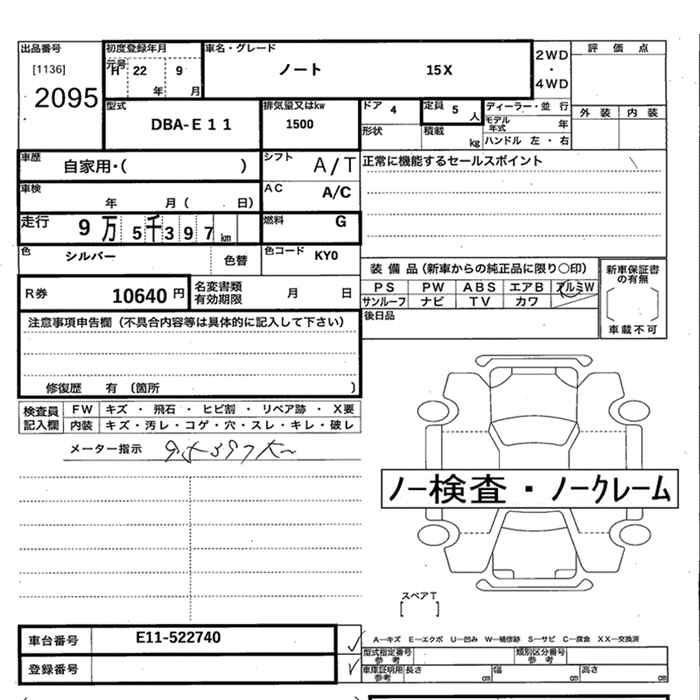 出品番号 初度登録年月 車名・グレード 2WD 評価点
[1136] 元号 H 22 9 ノート 15X ・
2095 年 月 4WD
型式 排気量又はkw ドア 4 定員 5 人 ディーラー・並行 外装 内装
DBA-E11 1500 形状 積載 kg モデル年式 年
ハンドル 左・右
車歴 自家用・( ) シフト A/T 正常に機能するセールスポイント
車検 年 月( 日) AC A/C
走行 9万5千397km 燃料 G
色 シルバー 色替 色コード KY0 装備品(新車からの純正品に限り〇印) 新車保証書の有無
R券 10640円 名変書類有効期限 月 日 PS PW ABS エアB アルミW
サンルーフ ナビ TV カワ 車載不可
注意事項申告欄(不具合内容等は具体的に記入して下さい) 後日品
修復歴 有 (箇所 )
検査員 FW キズ ・ 飛石 ・ ヒビ割 ・ リペア跡 ・ X要
記入欄 内装 キズ・汚レ・コゲ・穴・スレ・キレ・破レ
メーター指示
ノー検査・ノークレーム
スペアT
[ ]
車台番号 E11-522740 A―キズ E―エクボ U―凹み W―補修跡 S―サビ C―腐食 XX―交換済
型式指定番号 参考 類別区分番号 参考
登録番号 車庫証明用 参考 長さ cm 幅 cm 高さ cm